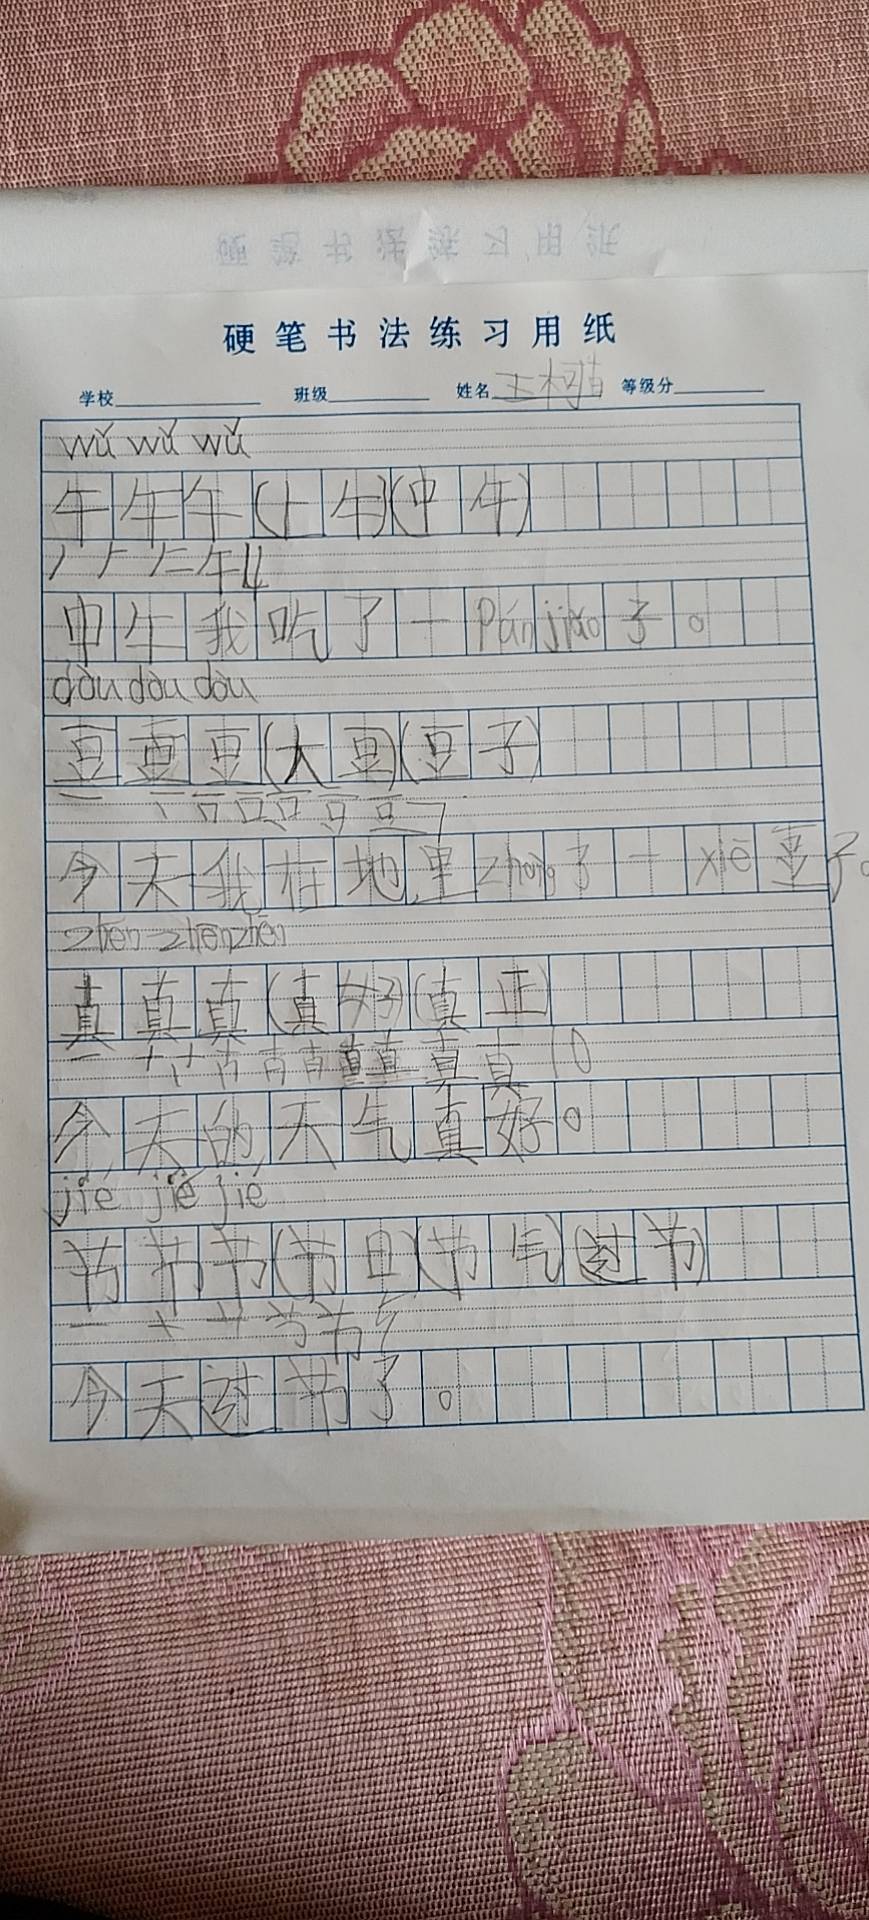 硬笔书法练习用纸
学校 班级 姓名 王柯 等级分
wǔ wǔ wǔ
午午午(上午)(中午)
丿 𠂉 午 4
中午我吃了一Pán jiǎo子。
dòu dòu dòu
豆豆豆(大豆)(豆子)
一 豆 7
今天我在地里zhòng了一xiē豆子。
zhēn zhēn zhēn
真真真(真好)(真正)
一 十 真 10
今天的天气真好。
jié jié jié
节节节(节日)(节气)(过节)
一 十 艹 节 5
今天过节了。